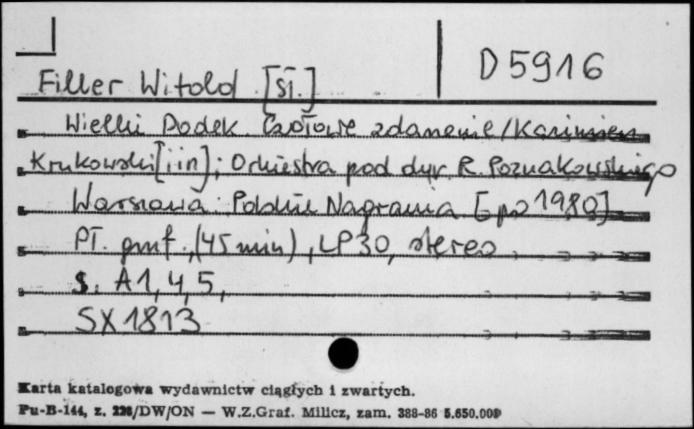 Filler Witold [sł.]
D 5916
Wielki Dodek. Czołowe zdanenie / Kazimierz
Krukowski [i in]; Orkiestra pod dyr. R. Poznakowskiego
Warszawa: Polskie Nagrania [po 1980]
Pł. gmf., (45 min), LP30, stereo
s. A1, 4, 5,
SX 1813
Karta katalogowa wydawnictw ciągłych i zwartych.
Pu-B-144, z. 226/DW/ON — W.Z.Graf. Milicz, zam. 388-86 5.650.000